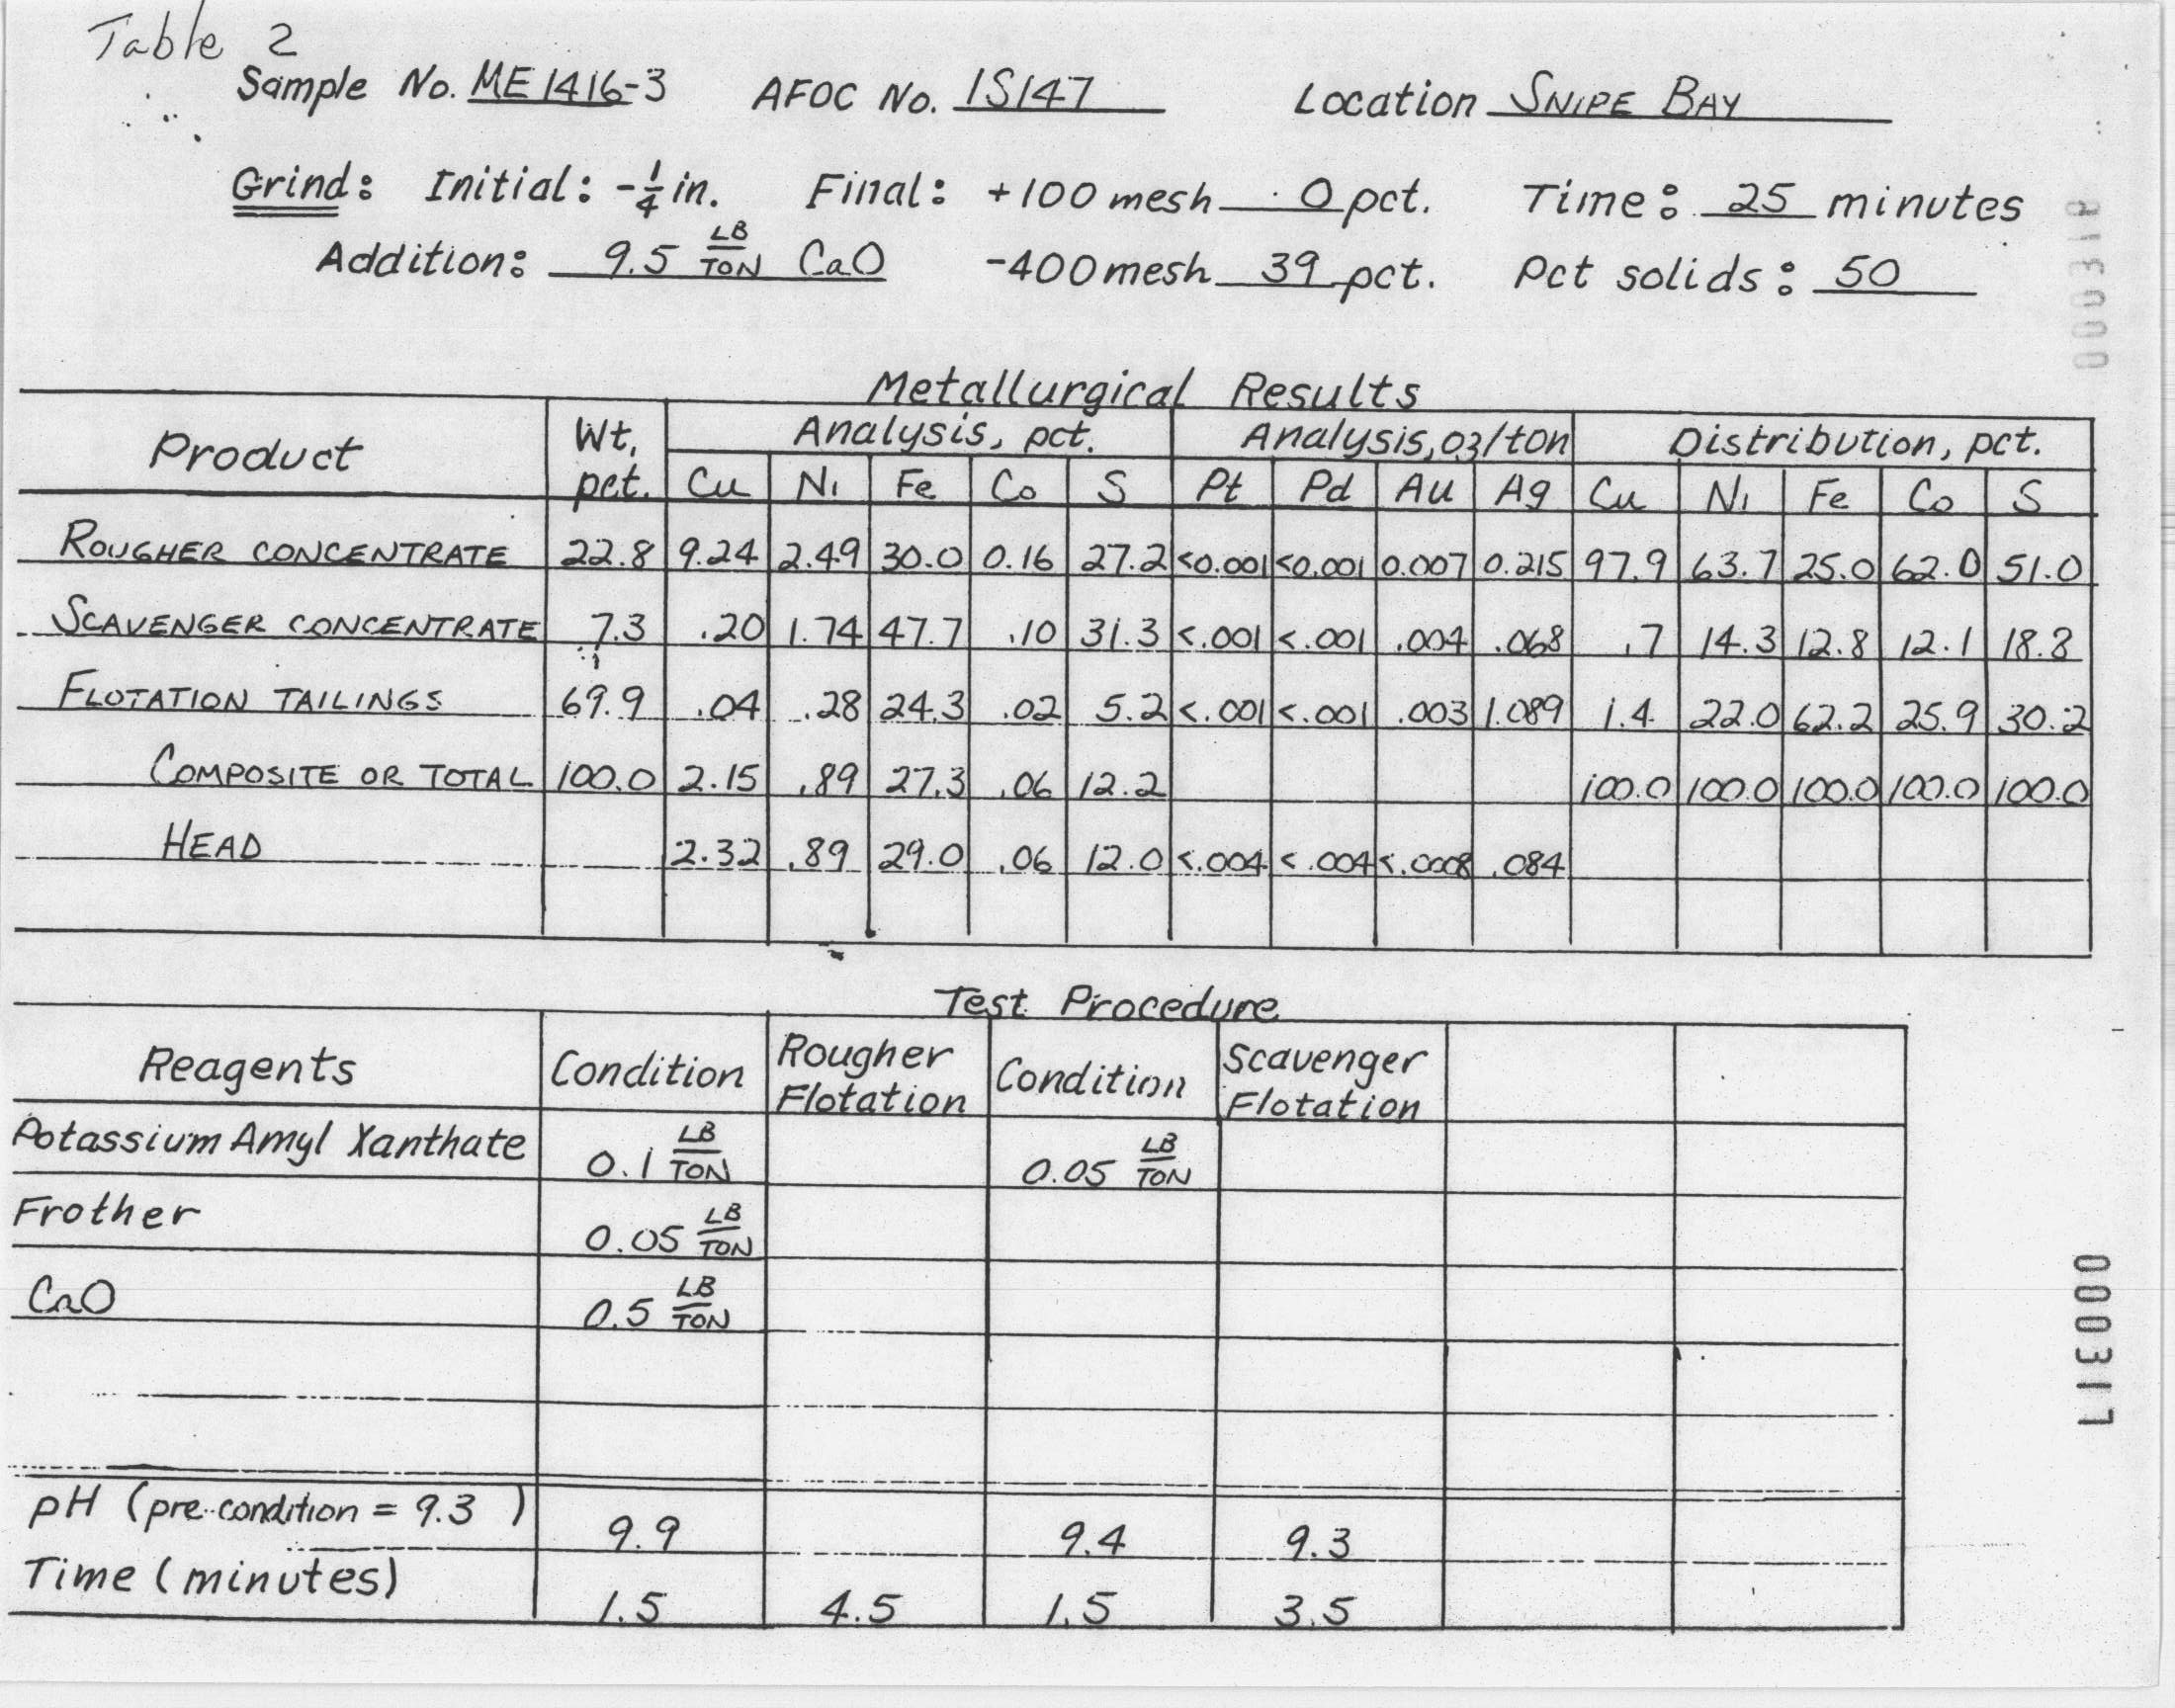 Table 2
Sample No. ME 1416-3 AFOC No. IS147 Location SNIPE BAY
Grind: Initial: -1/4 in. Final: +100 mesh 0 pct. Time: 25 minutes
Addition: 9.5 LB/TON CaO -400 mesh 39 pct. Pct solids: 50
000318
Metallurgical Results
Product Wt. pct. Analysis, pct. Analysis, oz/ton Distribution, pct.
Cu Ni Fe Co S Pt Pd Au Ag Cu Ni Fe Co S
ROUGHER CONCENTRATE 22.8 9.24 2.49 30.0 0.16 27.2 <0.001 <0.001 0.007 0.215 97.9 63.7 25.0 62.0 51.0
SCAVENGER CONCENTRATE 7.3 .20 1.74 47.7 .10 31.3 <.001 <.001 .004 .068 .7 14.3 12.8 12.1 18.8
FLOTATION TAILINGS 69.9 .04 .28 24.3 .02 5.2 <.001 <.001 .003 1.089 1.4 22.0 62.2 25.9 30.2
COMPOSITE OR TOTAL 100.0 2.15 .89 27.3 .06 12.2 100.0 100.0 100.0 100.0 100.0
HEAD 2.32 .89 29.0 .06 12.0 <.004 <.004 <.0008 .084
Test Procedure
Reagents Condition Rougher Flotation Condition Scavenger Flotation
Potassium Amyl Xanthate 0.1 LB/TON 0.05 LB/TON
Frother 0.05 LB/TON
CaO 0.5 LB/TON
pH (pre-condition = 9.3 ) 9.9 9.4 9.3
Time (minutes) 1.5 4.5 1.5 3.5
000317